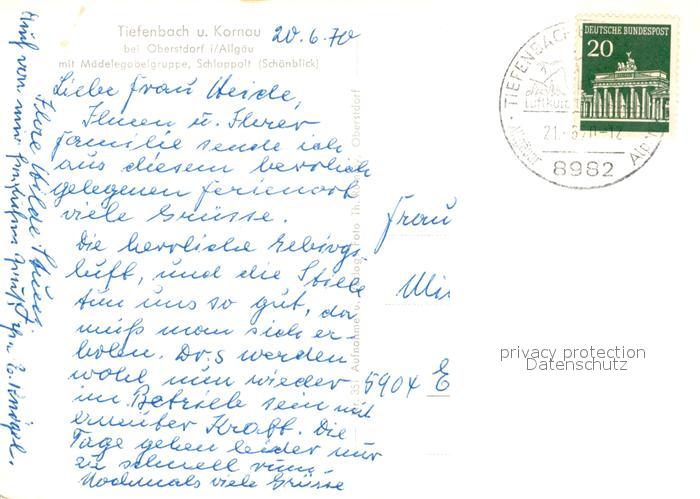 Tiefenbach u. Kornau
bei Oberstdorf i/Allgäu
mit Mädelegabelgruppe, Schlappolt (Schönblick)
20.6.70
Liebe Frau Heide,
Ihnen u. Ihrer
Familie sende ich
aus diesem herrlich
gelegenen Ferienort
viele Grüsse.
Die herrliche Gebirgs
luft, und die Stille
tun uns so gut, da
muß man sich er-
holen. Dr.s werden
wohl nun wieder
im Betriebe sein mit
erneuter Kraft. Die
Tage gehen leider nur
zu schnell rum.
Nochmals viele Grüsse
Ihre Hilde
Auch von mir
Frau
5904 E
Aufnahme u. Verlag Foto Oberstdorf
DEUTSCHE BUNDESPOST
20
TIEFENBACH
Luftkurort
21.-6.70-12
8982
privacy protection
Datenschutz